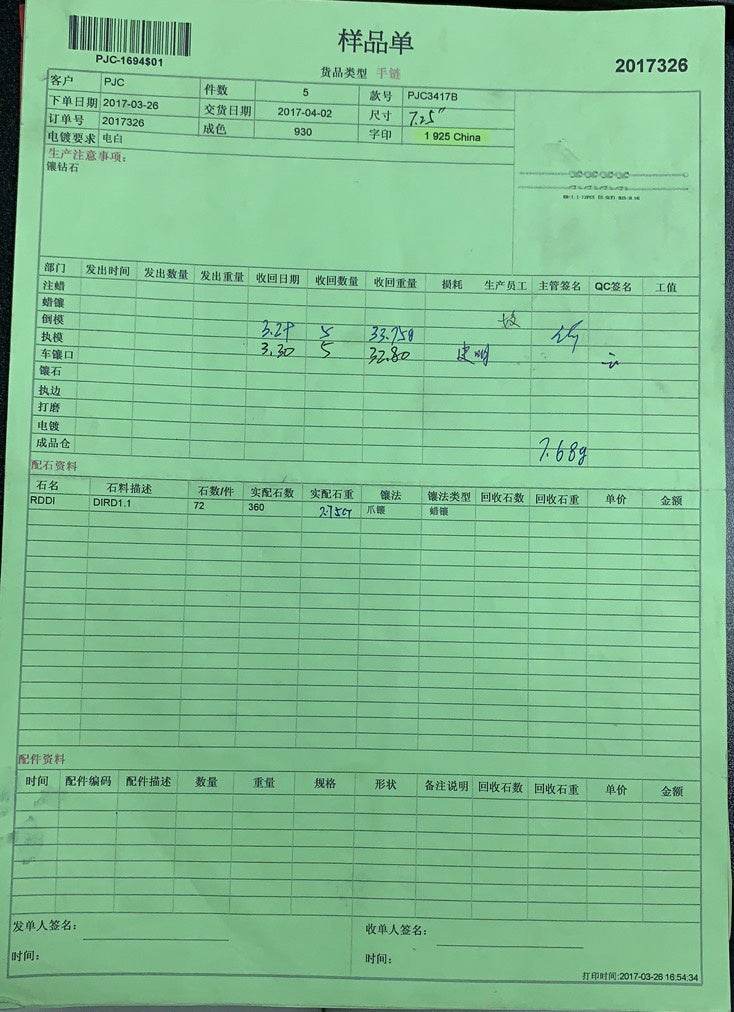 PJC-1694$01
样品单
货品类型 手链
2017326
客户 PJC 件数 5 款号 PJC3417B
下单日期 2017-03-26 交货日期 2017-04-02 尺寸 7.25"
订单号 2017326 成色 930 字印 1 925 China
电镀要求 电白
生产注意事项:
镶钻石
部门 发出时间 发出数量 发出重量 收回日期 收回数量 收回重量 损耗 生产员工 主管签名 QC签名 工值
注蜡
蜡镶
倒模
执模 3.29 5 33.75g
车镶口 3.30 5 32.80
镶石
执边
打磨
电镀
成品仓 7.68g
配石资料
石名 石料描述 石数/件 实配石数 实配石重 镶法 镶法类型 回收石数 回收石重 单价 金额
RDDI DIRD1.1 72 360 2.75CT 爪镶 蜡镶
配件资料
时间 配件编码 配件描述 数量 重量 规格 形状 备注说明 回收石数 回收石重 单价 金额
发单人签名: 收单人签名:
时间: 时间:
打印时间:2017-03-26 16:54:34